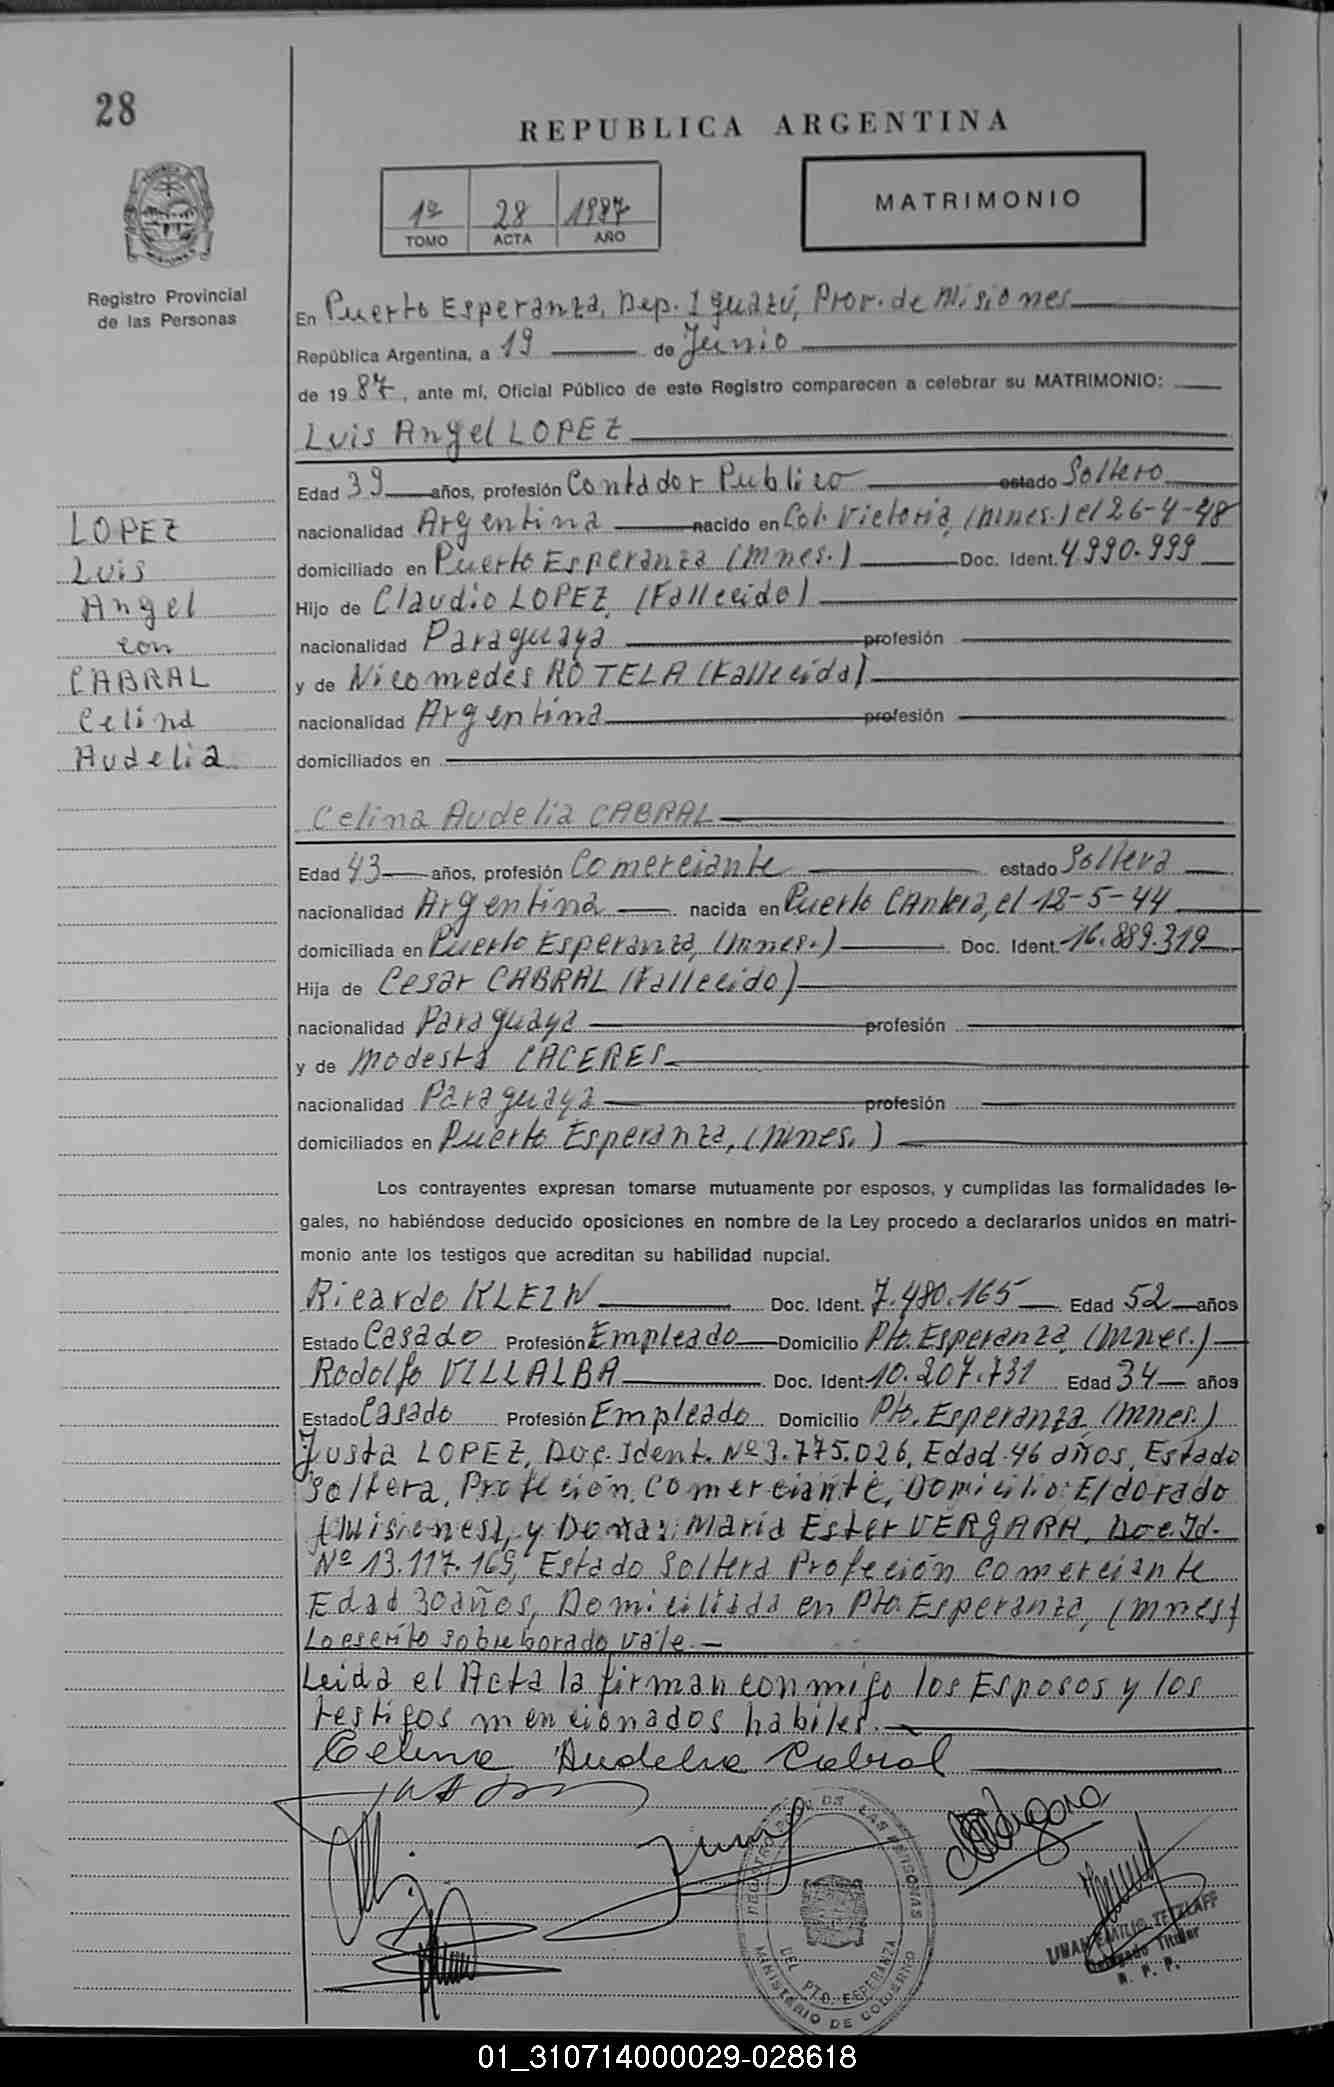 28
REPUBLICA ARGENTINA
1º 28 1987
TOMO ACTA AÑO
MATRIMONIO
Registro Provincial
de las Personas
En Puerto Esperanza, Dep. Iguazú, Prov. de Misiones
República Argentina, a 19 de Junio
de 1987, ante mí, Oficial Público de este Registro comparecen a celebrar su MATRIMONIO:
Luis Angel LOPEZ
Edad 39 años, profesión Contador Publico estado Soltero
nacionalidad Argentina nacido en Col. Victoria, (mnes.) el 26-4-48
domiciliado en Puerto Esperanza (mnes.) Doc. Ident. 4.990.999
Hijo de Claudio LOPEZ, (Fallecido)
nacionalidad Paraguaya profesión
y de Nicomedes ROTELA (Fallecida)
nacionalidad Argentina profesión
domiciliados en
LOPEZ
Luis
Angel
con
CABRAL
Celina
Audelia
Celina Audelia CABRAL
Edad 43 años, profesión Comerciante estado Soltera
nacionalidad Argentina nacida en Puerto CAntera, el 12-5-44
domiciliada en Puerto Esperanza, (mnes.) Doc. Ident. 16.889.319
Hija de Cesar CABRAL (Fallecido)
nacionalidad Paraguaya profesión
y de Modesta CACERES
nacionalidad Paraguaya profesión
domiciliados en Puerto Esperanza, (mnes.)
Los contrayentes expresan tomarse mutuamente por esposos, y cumplidas las formalidades le-
gales, no habiéndose deducido oposiciones en nombre de la Ley procedo a declararlos unidos en matri-
monio ante los testigos que acreditan su habilidad nupcial.
Ricardo KLEIN Doc. Ident. 7.480.165 Edad 52 años
Estado Casado Profesión Empleado Domicilio Pto. Esperanza, (mnes.)
Rodolfo VILLALBA Doc. Ident. 10.207.731 Edad 34 años
Estado Casado Profesión Empleado Domicilio Pto. Esperanza (mnes.)
Justa LOPEZ, Doc. Ident. Nº 3.775.026, Edad 46 años, Estado
Soltera, Profeción, Comerciante, Domicilio: Eldorado
(Misiones), y Doña: Maria Ester VERGARA, Doc. Id.
Nº 13.117.169, Estado Soltera Profeción comerciante
Edad 30 años, Domiciliada en Pto. Esperanza, (mnes)
Lo escrito sobreborado vale.-
Leida el Acta la firman conmigo los Esposos y los
testigos mencionados habiles.
Celina Audelia Cabral
REGISTRO PROV. DE LAS PERSONAS
DEL PTO. ESPERANZA
MINISTERIO DE GOBIERNO
EMILIO TETZLAFF
Delegado Titular
R. P. P.
01_310714000029-028618